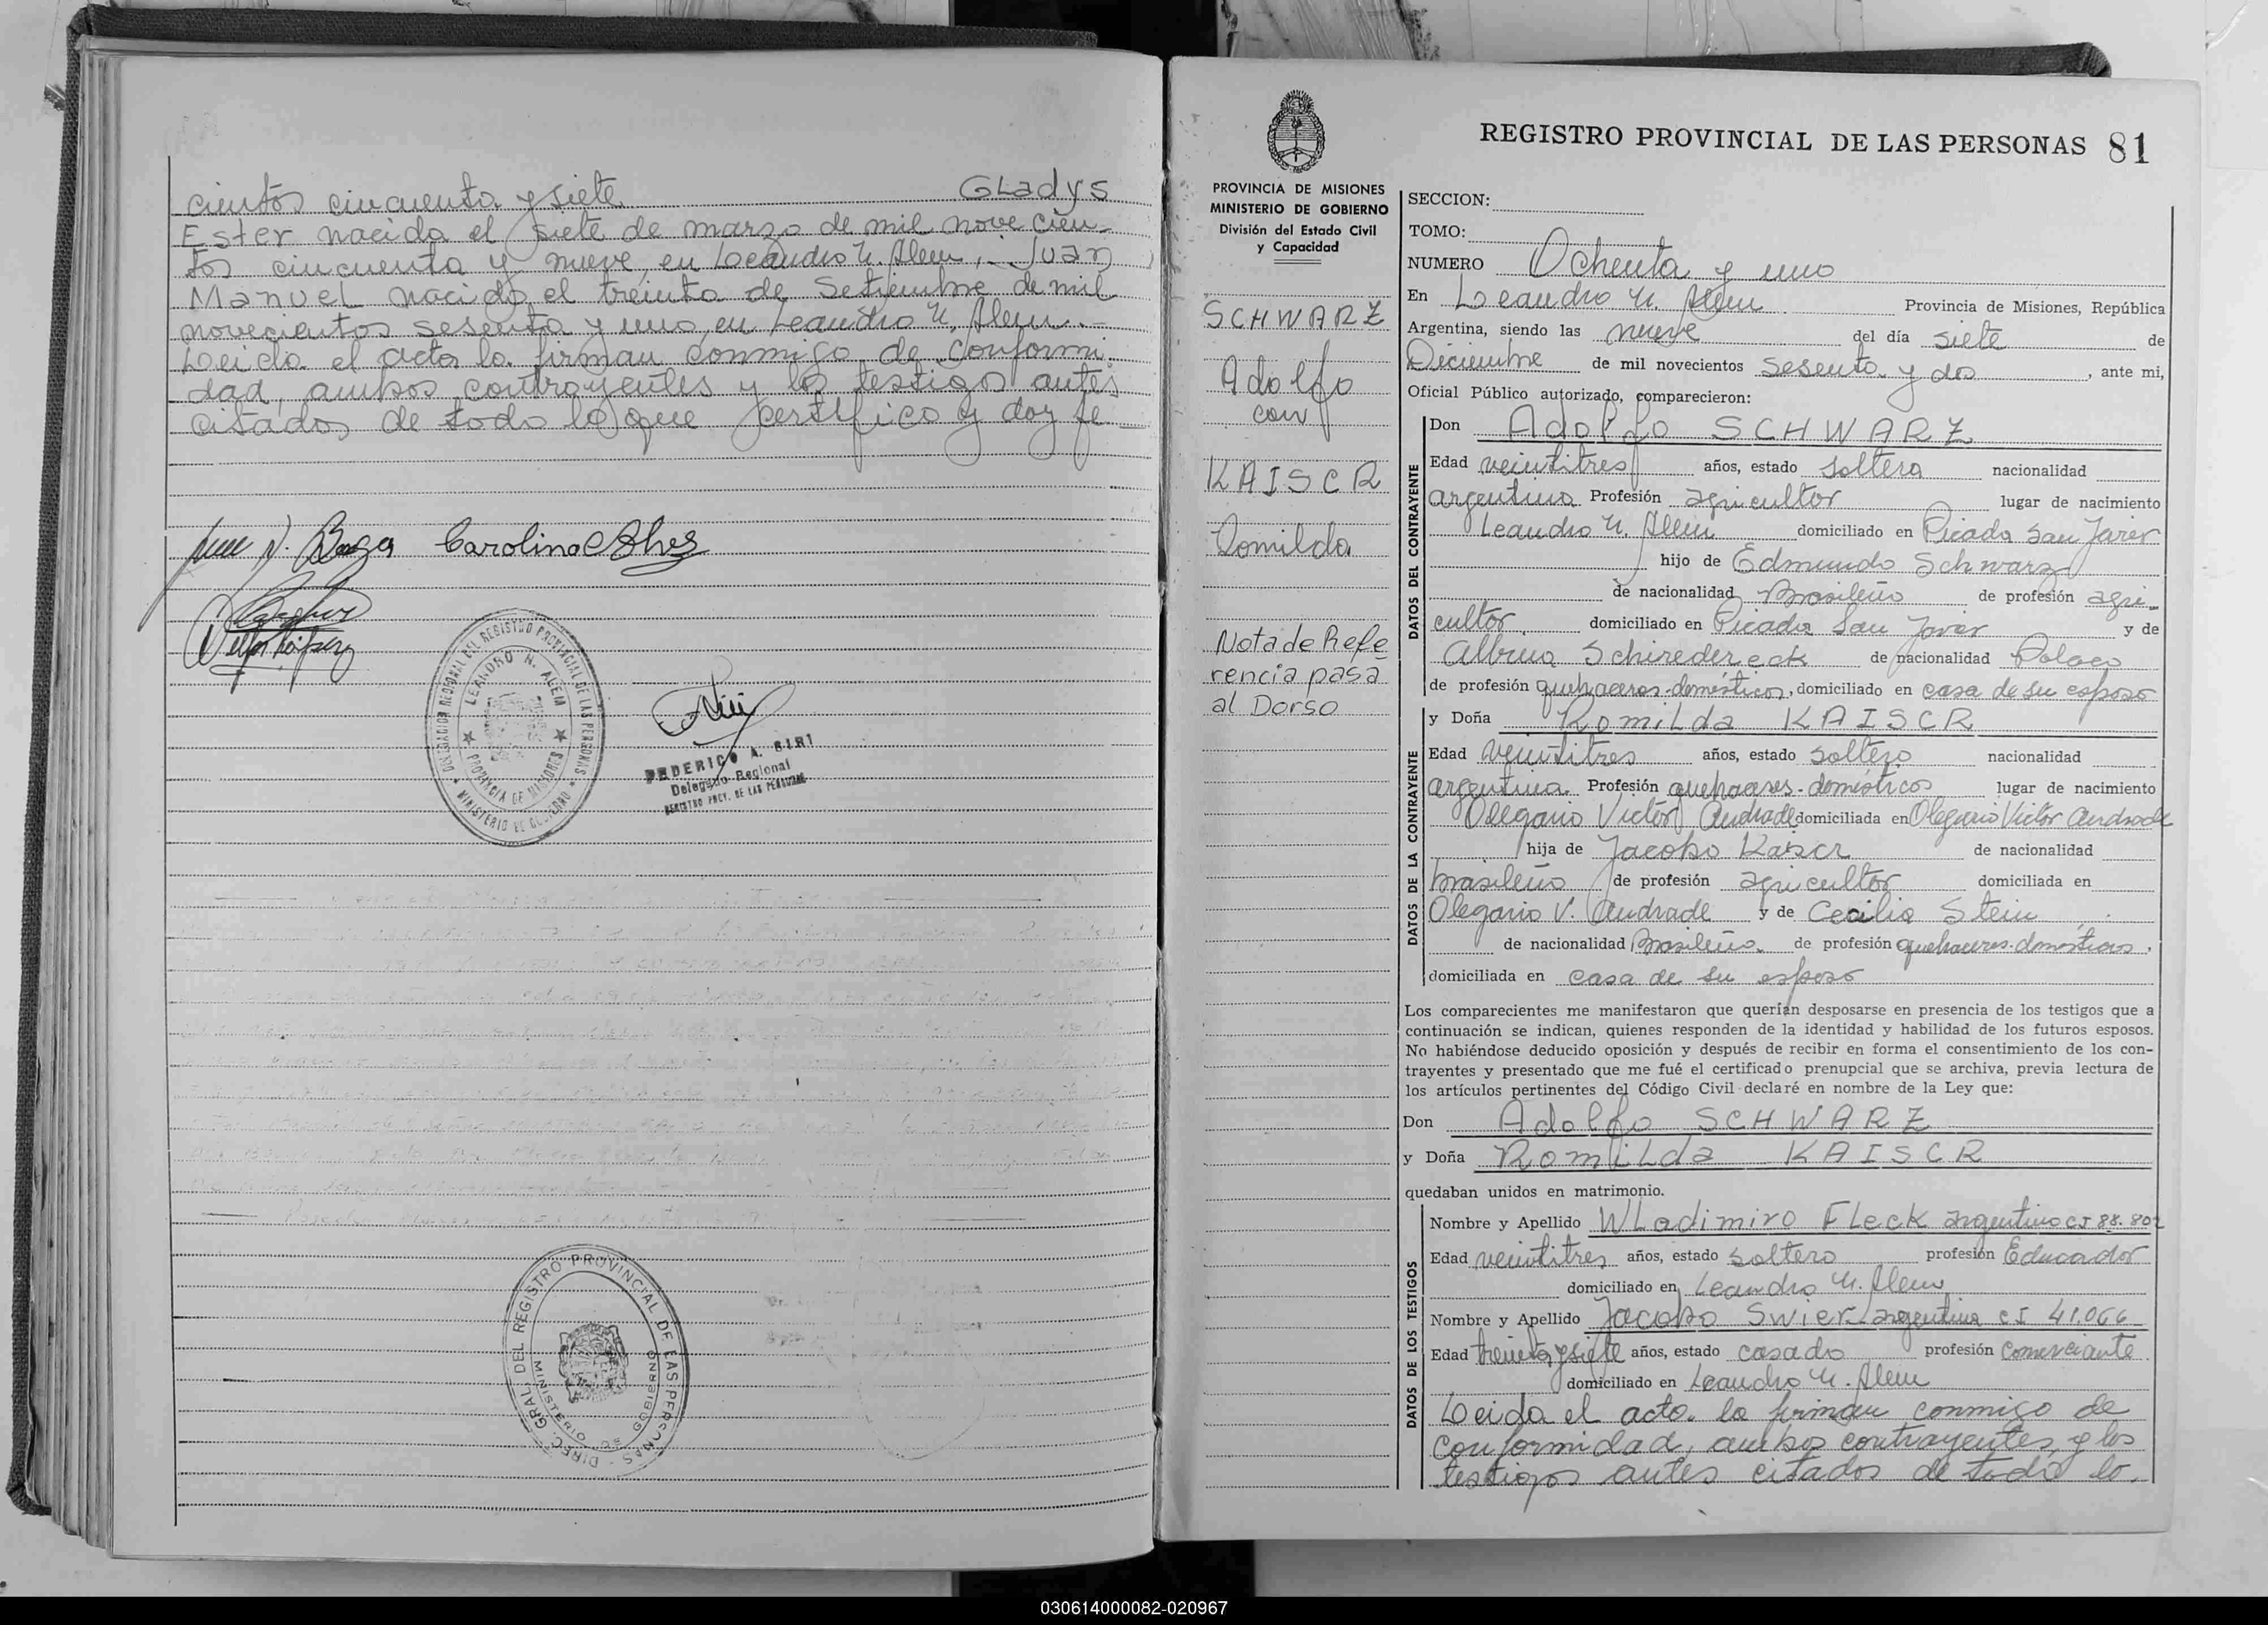 cientos cincuenta y siete GLadys
Ester nacida el siete de marzo de mil novecien-
tos cincuenta y nueve, en Leandro N. Alem, Juan
Manuel nacido el treinta de Setiembre de mil
novecientos sesenta y uno, en Leandro N. Alem.-
Leida el acta la firman conmigo de conformi-
dad, ambos contrayentes y los testigos antes
citados de todo lo que certifico y doy fe.
Carolina
DELEGACION REGIONAL DEL REGISTRO PROVINCIAL DE LAS PERSONAS
LEANDRO N. ALEM
PROVINCIA DE MISIONES
MINISTERIO DE GOBIERNO
FEDERICO A. SIRI
Delegado Regional
REGISTRO PROV. DE LAS PERSONAS
DIREC. GRAL. DEL REGISTRO PROVINCIAL DE LAS PERSONAS
MINISTERIO DE GOBIERNO
PROVINCIA DE MISIONES
MINISTERIO DE GOBIERNO
División del Estado Civil
y Capacidad
SCHWARZ
Adolfo
con
KAISCR
Romilda
Nota de Refe
rencia pasa
al Dorso
REGISTRO PROVINCIAL DE LAS PERSONAS 81
SECCION:
TOMO:
NUMERO Ochenta y uno
En Leandro N. Alem Provincia de Misiones, República
Argentina, siendo las nueve del día siete de
Diciembre de mil novecientos sesenta y dos, ante mi,
Oficial Público autorizado, comparecieron:
DATOS DEL CONTRAYENTE
Don Adolfo SCHWARZ
Edad veintitres años, estado soltero nacionalidad
argentino Profesión agricultor lugar de nacimiento
Leandro N. Alem domiciliado en Picada San Javier
hijo de Edmundo Schwarz
de nacionalidad Brasileño de profesión agri-
cultor domiciliado en Picada San Javier y de
Albina Schiredereck de nacionalidad Polaco
de profesión quehaceres-domésticos, domiciliado en casa de su esposo
DATOS DE LA CONTRAYENTE
y Doña Romilda KAISCR
Edad veintitres años, estado soltero nacionalidad
argentina Profesión quehaceres-domésticos lugar de nacimiento
Olegario Victor Andrade domiciliada en Olegario Victor Andrade
hija de Jacobo Kaiscr de nacionalidad
brasileño de profesión agricultor domiciliada en
Olegario V. Andrade y de Cecilia Stein
de nacionalidad Brasileña de profesión quehaceres-domésticos,
domiciliada en casa de su esposo
Los comparecientes me manifestaron que querían desposarse en presencia de los testigos que a
continuación se indican, quienes responden de la identidad y habilidad de los futuros esposos.
No habiéndose deducido oposición y después de recibir en forma el consentimiento de los con-
trayentes y presentado que me fué el certificado prenupcial que se archiva, previa lectura de
los artículos pertinentes del Código Civil declaré en nombre de la Ley que:
Don Adolfo SCHWARZ
y Doña Romilda KAISCR
quedaban unidos en matrimonio.
DATOS DE LOS TESTIGOS
Nombre y Apellido WLadimiro FLeck argentino CI 88.802
Edad veintitres años, estado soltero profesión Educador
domiciliado en Leandro N. Alem
Nombre y Apellido Jacobo Swier argentino CI 41.066
Edad treinta y siete años, estado casado profesión comerciante
domiciliado en Leandro N. Alem
Leida el acta la firman conmigo de
conformidad, ambos contrayentes, y los
testigos antes citados de todo lo
030614000082-020967